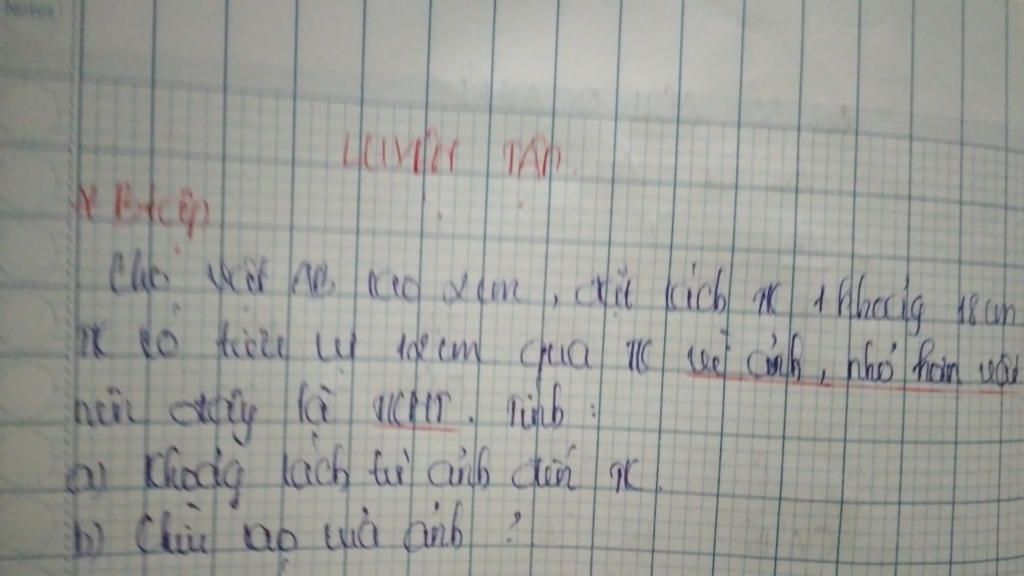 LUYỆN TẬP
Bài tập
Cho vật AB cao 2cm, đặt cách TK 1 khoảng 18cm
TK có tiêu cự 12cm qua TK vẽ ảnh, nhỏ hơn vật
nên đây là TKPK. Tính:
a) Khoảng cách từ ảnh đến TK.
b) Chiều cao của ảnh?